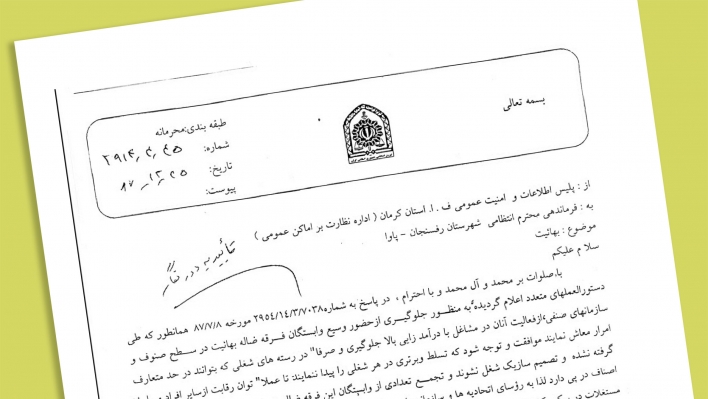 بسمه تعالی
طبقه بندی:محرمانه
شماره: ۲۹۱۴,۴,۴۵
تاریخ: ۸۷-۱۲-۲۵
پیوست:
از : پلیس اطلاعات و امنیت عمومی ف . ا. استان کرمان ( اداره نظارت بر اماکن عمومی )
به : فرماندهی محترم انتظامی شهرستان رفسنجان – پاوا
موضوع : بهائیت
سلام علیکم
با صلوات بر محمد و آل محمد و با احترام ، در پاسخ به شماره ۲۹۵٤/۱٤/۳/۷۰۳۸ مورخه ۸۷/۷/۸ همانطور که طی
دستورالعملهای متعدد اعلام گردیده به منظـور جلوگیری ازحضور وسیع وابستگان فـرقه ضاله بهائیت در سطح صنوف و
سازمانهای صنفی،ازفعالیت آنان در مشاغل با درآمد زایی بالا جلوگیری و صرفا" در رسته های شغلی که بتوانند در حد متعارف
امرار معاش نمایند موافقت و توجه شود که تسلط وبرتری در هر شغلی را پیدا ننمایند؛ تا عملا" توان رقابت ازسایر افراد
گرفته شده و تصمیم سازیک شغل نشوند و تجمـع تعدادی از وابستگان این فرقه
اصناف در پی دارد لذا به رؤسای اتحادیه ها و
مستغلات در